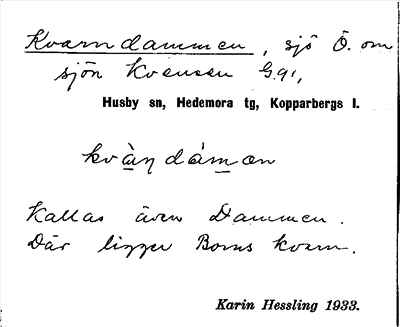 Kvarndammen, sjö Ö. om
sjön Kvensen G.91,
Husby sn, Hedemora tg, Kopparbergs l.
kvàṇdám ən
Kallas även Dammen.
Där ligger Borns kvarn.
Karin Hessling 1933.